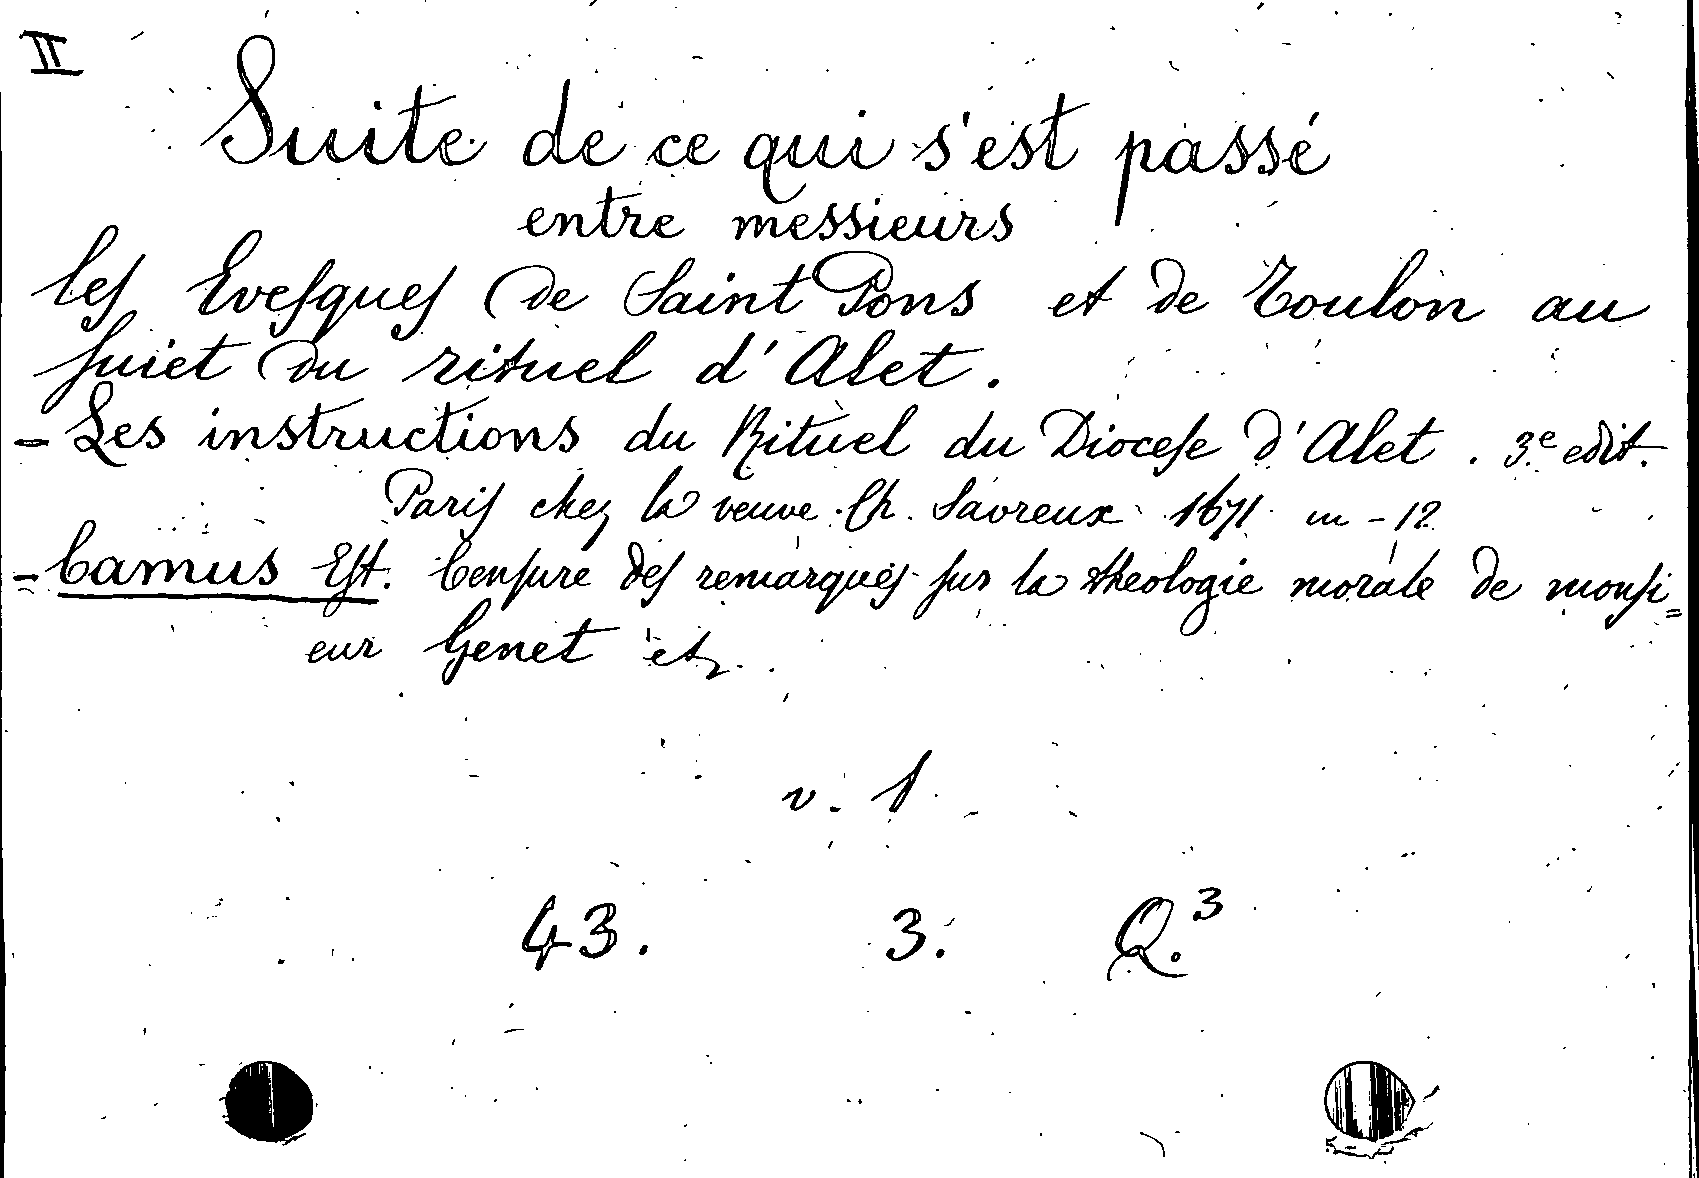 II
Suite de ce qui s'est passé
entre messieurs
les Evesques de Saint Pons et de Toulon au
suiet du rituel d'Alet.
- Les instructions du Rituel du Diocese d'Alet. 3.e edit.
Paris chez la veuve Ch. Savreux 1671 in-12
- Camus Est. Censure des remarques sur la theologie morale de monsi=
eur Genet etz.
v. 1
43. 3. Q.3